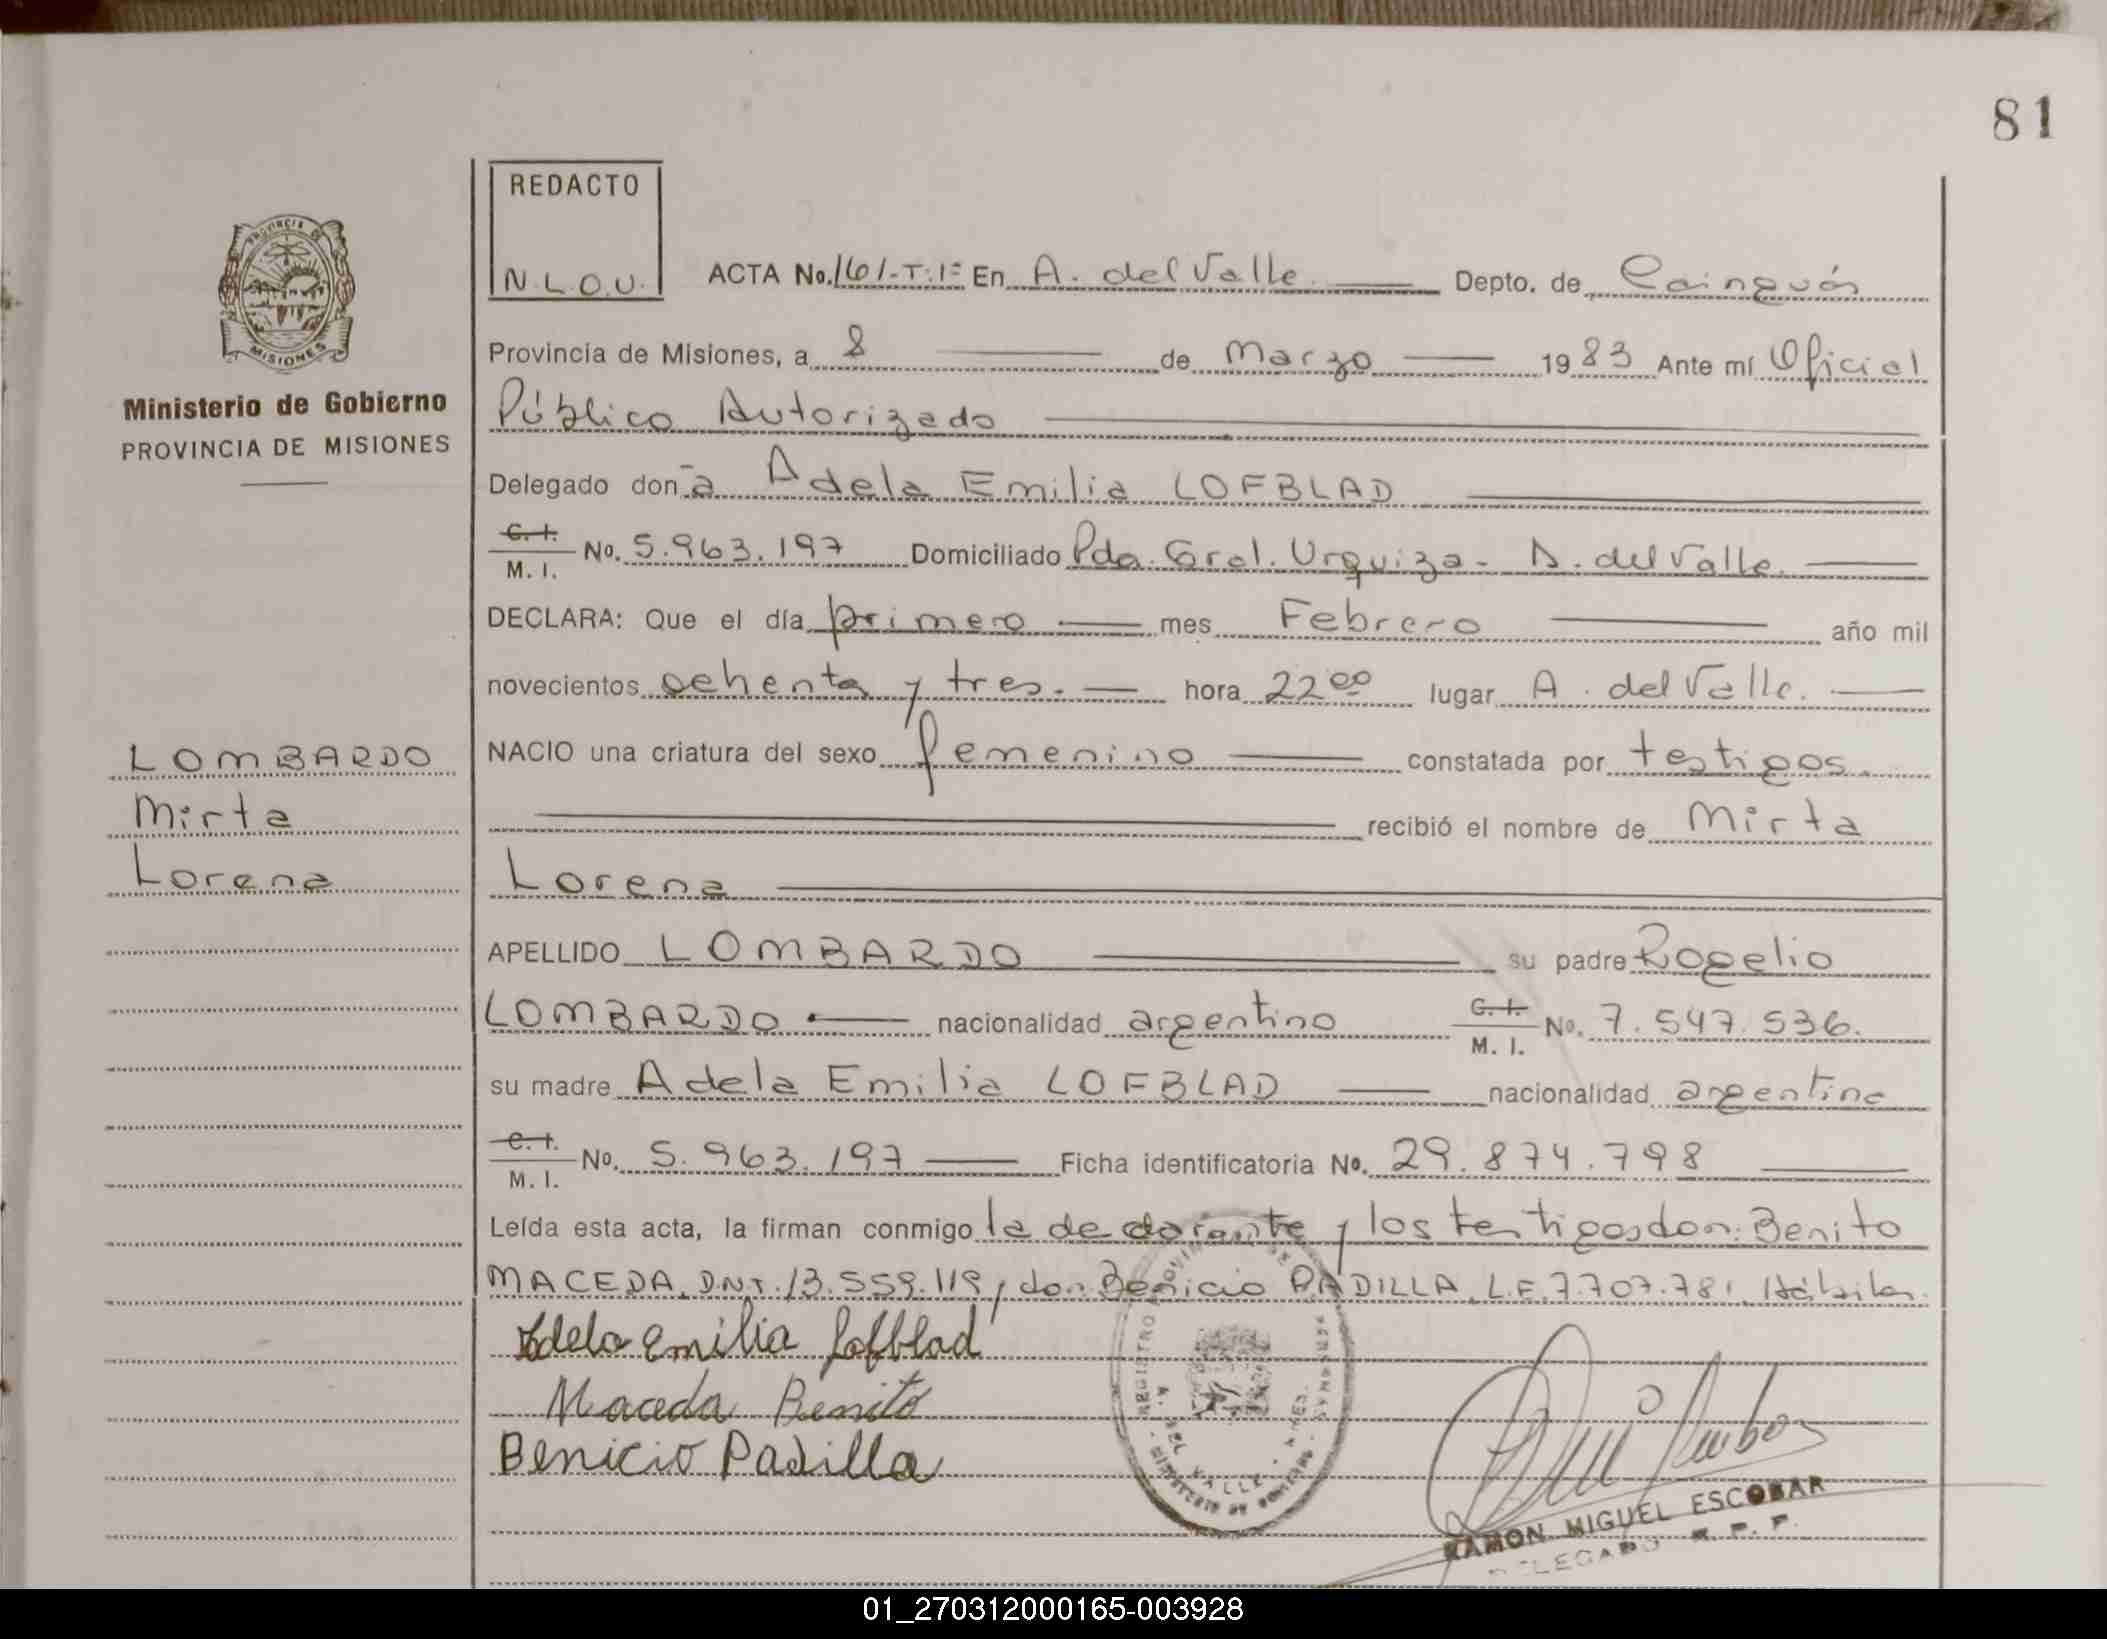 81
REDACTO
N.L.O.U.
PROVINCIA DE
MISIONES
Ministerio de Gobierno
PROVINCIA DE MISIONES
ACTA No. 161-T:1º En A. del Valle Depto. de Cainguás
Provincia de Misiones, a 8 de Marzo 1983 Ante mí Oficial
Público Autorizado
Delegado don̄a Adela Emilia LOFBLAD
C.I. M.I. No. 5.963.197 Domiciliado Pda. Gral. Urquiza - A. del Valle.
DECLARA: Que el día primero mes Febrero año mil
novecientos ochenta y tres. hora 22 00 lugar A. del Valle.
NACIO una criatura del sexo femenino constatada por testigos.
recibió el nombre de Mirta
Lorena
LOMBARDO
Mirta
Lorena
APELLIDO LOMBARDO su padre Rogelio
LOMBARDO nacionalidad argentino C.I. M.I. No. 7.547.536.
su madre Adela Emilia LOFBLAD nacionalidad argentina
C.I. M.I. No. 5.963.197 Ficha identificatoria No. 29.874.798
Leída esta acta, la firman conmigo la declarante y los testigos don: Benito
MACEDA, D.N.I. 13.559.119, don Benicio PADILLA, L.E. 7.707.781, Hábiles.
Adela Emilia Lofblad
Maceda Benito
Benicio Padilla
REGISTRO PROVINCIAL DE PERSONAS
A. DEL VALLE - MNES.
MINISTERIO DE GOBIERNO
RAMON MIGUEL ESCOBAR
DELEGADO R. P. P.
01_270312000165-003928